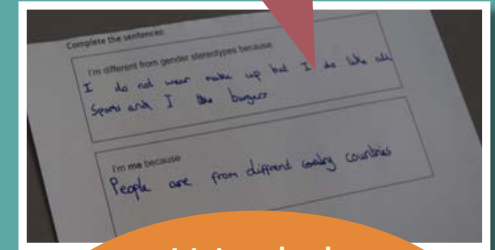 Complete the sentences:
I'm different from gender stereotypes because
I do not wear make up but I do like all
Sports and I like burgers
I'm me because
People are from diffrent countries